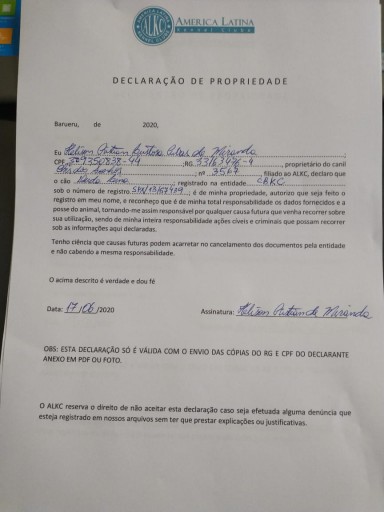 ALKC
AMERICA LATINA
Kennel Clube
DECLARAÇÃO DE PROPRIEDADE
Barueru, de 2020,
Eu de Miranda
CPF ;RG , proprietário do canil
;nº 3567 , filiado ao ALKC, declaro que
o cão , registrado na entidade CBKC
sob o número de registro ; é de minha propriedade, autorizo que seja feito o
registro em meu nome, e reconheço que é de minha total responsabilidade os dados fornecidos e a
posse do animal, tornando-me assim responsável por qualquer causa futura que venha recorrer sobre
sua utilização, sendo de minha inteira responsabilidade ações cíveis e criminais que possam recorrer
sob as informações aqui declaradas.
Tenho ciência que causas futuras podem acarretar no cancelamento dos documentos pela entidade
e não cabendo a mesma responsabilidade.
O acima descrito é verdade e dou fé
Data: 17/06/2020 Assinatura: Miranda
OBS: ESTA DECLARAÇÃO SÓ É VÁLIDA COM O ENVIO DAS CÓPIAS DO RG E CPF DO DECLARANTE
ANEXO EM PDF OU FOTO.
O ALKC reserva o direito de não aceitar esta declaração caso seja efetuada alguma denúncia que
esteja registrado em nossos arquivos sem ter que prestar explicações ou justificativas.